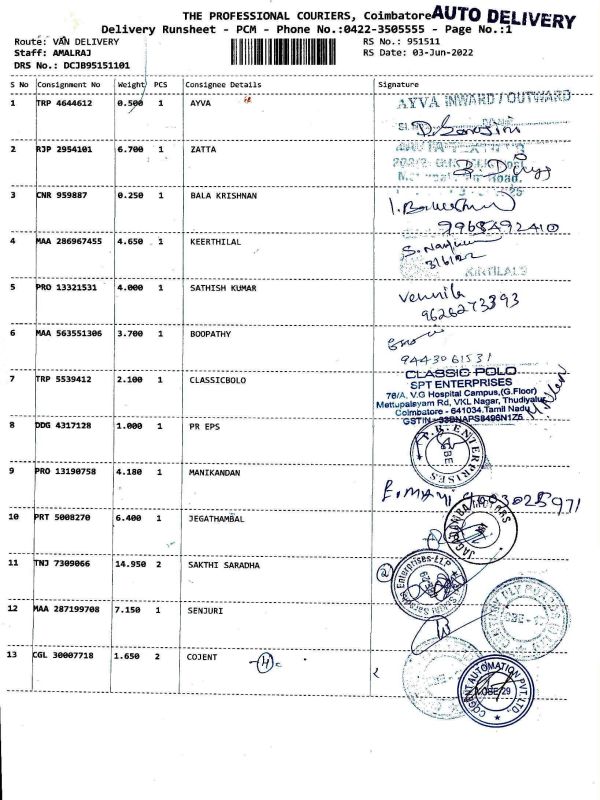 THE PROFESSIONAL COURIERS, Coimbatore AUTO DELIVERY
Delivery Runsheet - PCM - Phone No.:0422-3505555 - Page No.:1
Route: VAN DELIVERY RS No.: 951511
Staff: AMALRAJ RS Date: 03-Jun-2022
DRS No.: DCJB95151101
S No Consignment No Weight PCS Consignee Details Signature
1 TRP 4644612 0.500 1 AYVA AYVA INWARD / OUTWARD
2 RJP 2954101 6.700 1 ZATTA
3 CNR 959887 0.250 1 BALA KRISHNAN
9965492410
4 MAA 286967455 4.650 1 KEERTHILAL
3/6/22
KIRTILALS
5 PRO 13321531 4.000 1 SATHISH KUMAR Vennila
9626273393
6 MAA 563551306 3.700 1 BOOPATHY
9443061531
7 TRP 5539412 2.100 1 CLASSICBOLO CLASSIC POLO
SPT ENTERPRISES
76/A, V.G Hospital Campus,(G.Floor)
Mettupalayam Rd, VKL Nagar, Thudiyalur
Coimbatore - 641034.Tamil Nadu
8 DDG 4317128 1.000 1 PR EPS P.B. ENTERPRISES
CBE
9 PRO 13190758 4.180 1 MANIKANDAN E.MANI 9003025971
10 PRT 5008270 6.400 1 JEGATHAMBAL
11 TNJ 7309066 14.950 2 SAKTHI SARADHA
12 MAA 287199708 7.150 1 SENJURI
13 CGL 30007718 1.650 2 COJENT COGENT AUTOMATION PVT.LTD.
CBE-29